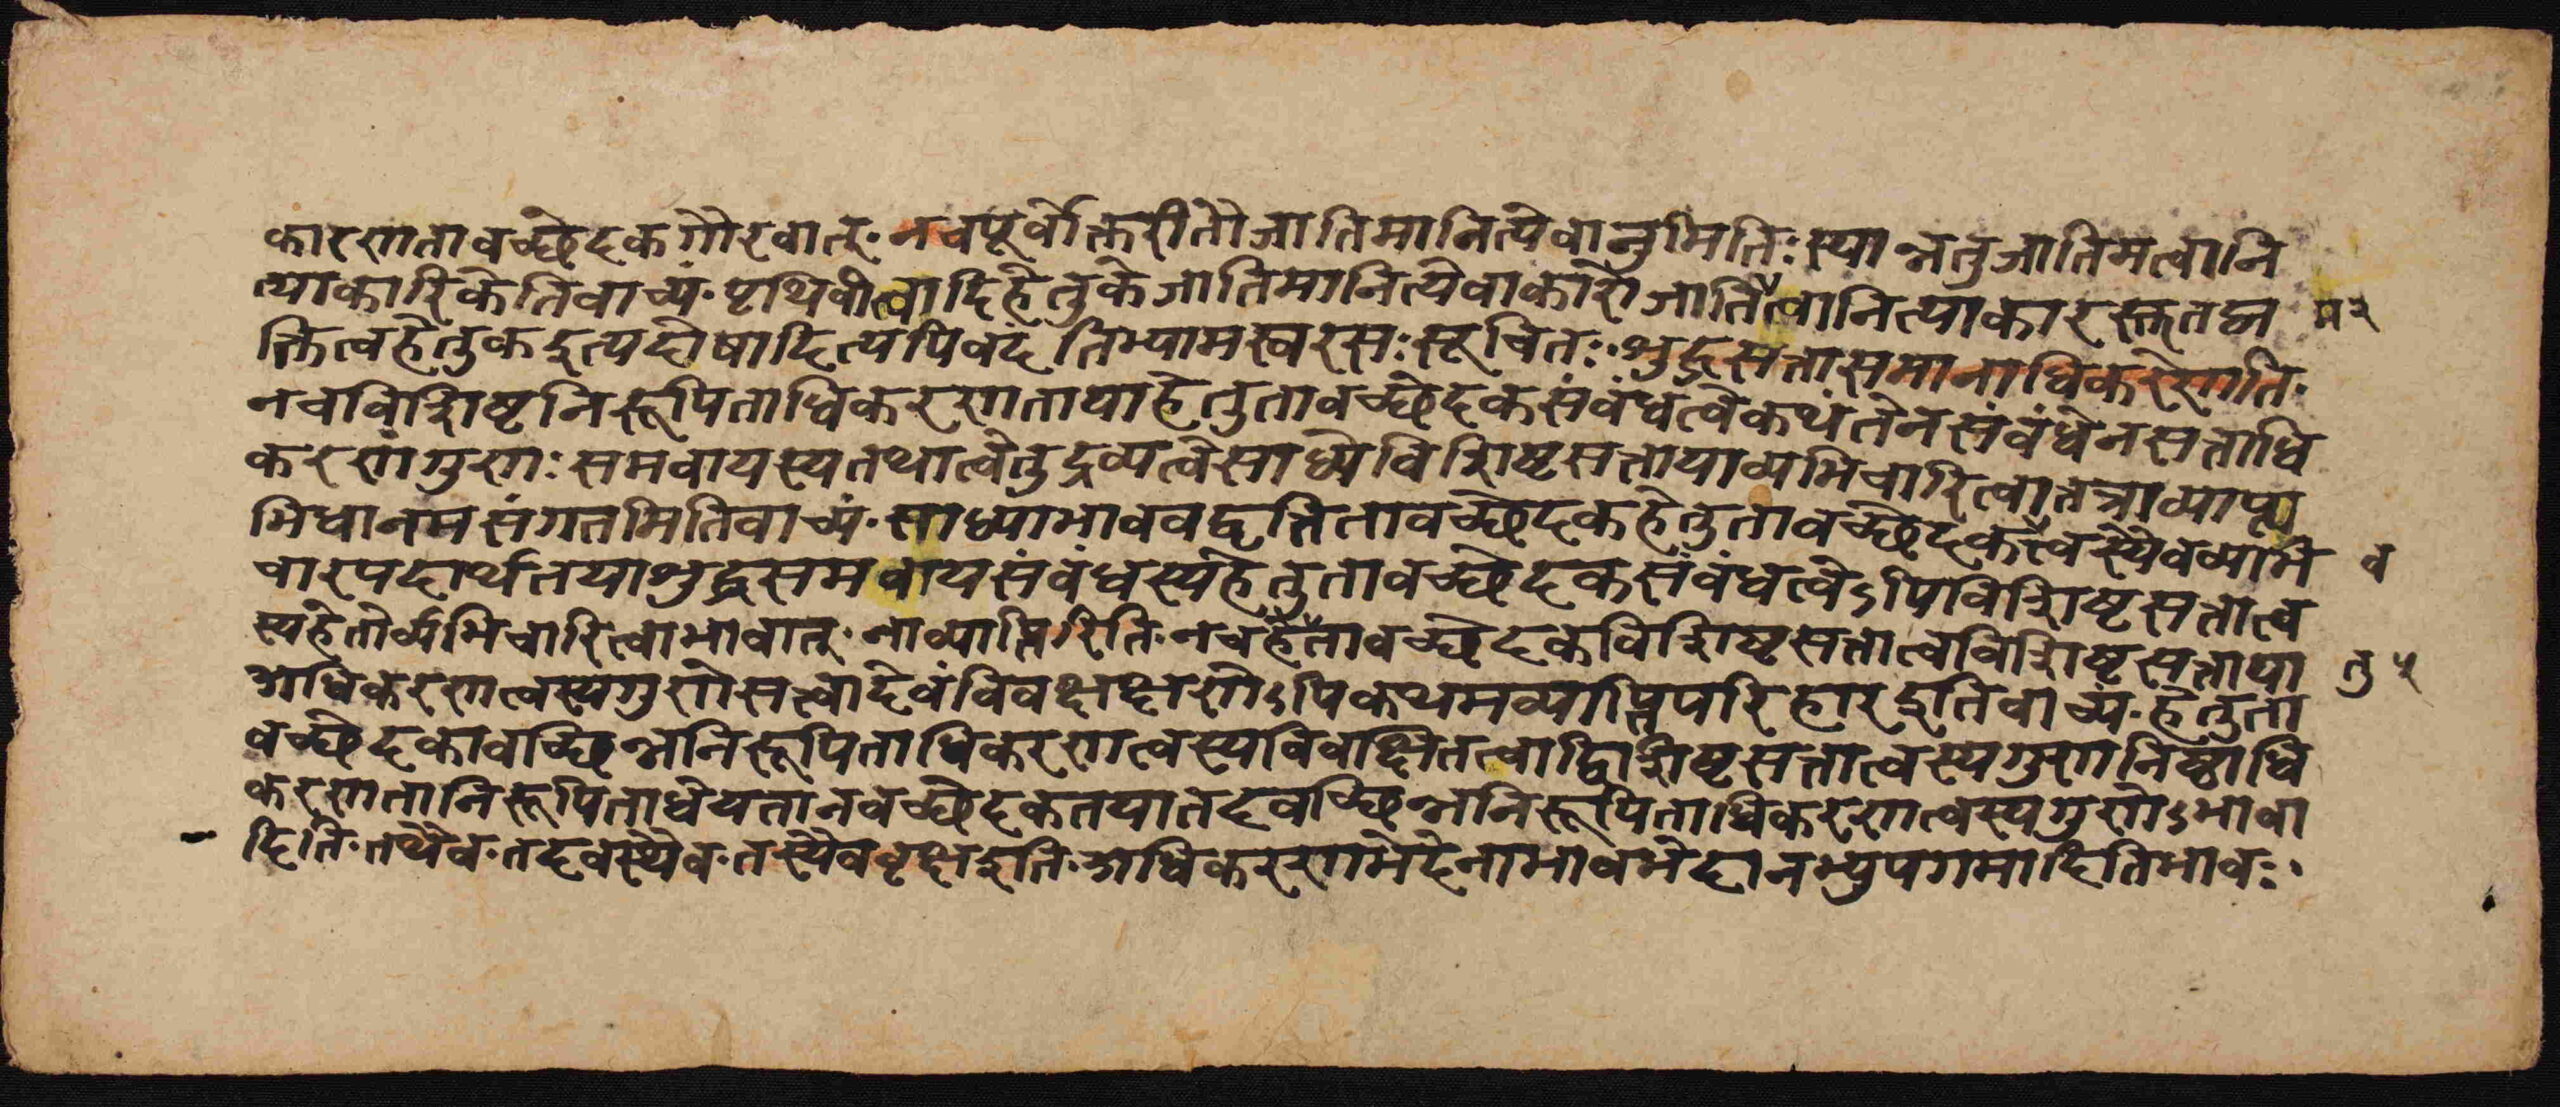 कारणतावच्छेदकगौरवात्· नचपूर्वोक्तरीतौजातिमानित्येवानुमितिःस्यान्नतुजातिमत्वानि
त्याकारिकेतिवाच्यं· पृथिवीत्वादिहेतुकेजातिमानित्येवाकारोजातित्वानित्याकारस्तुतद्व्य
म२
क्तित्वहेतुकइत्यदोषादित्यपिवदंतिभ्यामस्वरसःसूचितः· शुद्धसत्तासमानाधिकरणेति·
नचविशिष्टनिरूपिताधिकरणतायाहेतुतावच्छेदकसंवंधत्वेकथंतेनसंवंधेनसत्ताधि
करणंगुणःसमवायस्यतथात्वेतुद्रव्यत्वेसाध्येविशिष्टसत्तायाव्यभिचारित्वातत्राव्याप्त्य
भिधानमसंगतमितिवाच्यं· साध्याभाववद्वृत्तितावच्छेदकहेतुतावच्छेदकत्वस्यैवव्यभि
व
चारपदार्थतयाशुद्धसमवायसंवंधस्यहेतुतावच्छेदकसंवंधत्वेऽपिविशिष्टसत्तात्व
स्यहेतोर्व्यभिचारित्वाभावात्· नाव्याप्तिरिति· नचहेतावच्छेदकविशिष्टसत्तात्वविशिष्टसत्ताया
तु५
अधिकरणत्वस्यगुणेसत्वादेवंविवक्षक्षणेऽपिकथमव्याप्तिपरिहारइतिवाच्यं· हेतुता
वच्छेदकावच्छिन्ननिरूपिताधिकरणत्वस्यविवक्षितत्वाद्विशिष्टसत्तात्वस्यगुणनिष्ठाधि
करणतानिरूपिताधेयतानवच्छेदकतयातदवच्छिन्ननिरूपिताधिकरणत्वस्यगुणेऽभावा
दिति· तथैव· तदवस्थैव· तस्यैववृक्षइति· अधिकरणभेदेनाभावभेदानभ्युपगमादितिभावः·